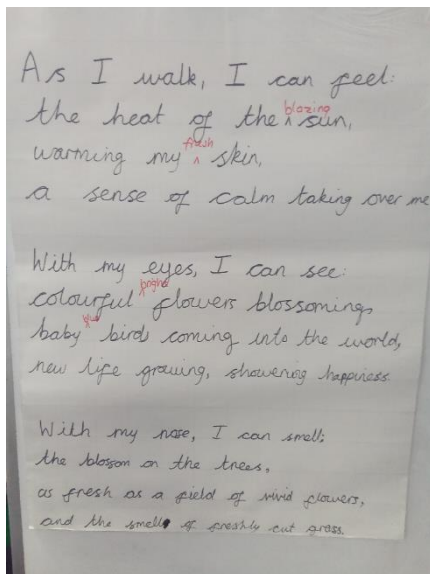 As I walk, I can feel:
the heat of the blazing sun,
warming my fresh skin,
a sense of calm taking over me
With my eyes, I can see:
colourful bright flowers blossoming,
baby blue birds coming into the world,
new life growing, showering happiness.
With my nose, I can smell;
the blossom on the trees,
as fresh as a field of vivid flowers,
and the smell of freshly cut grass.